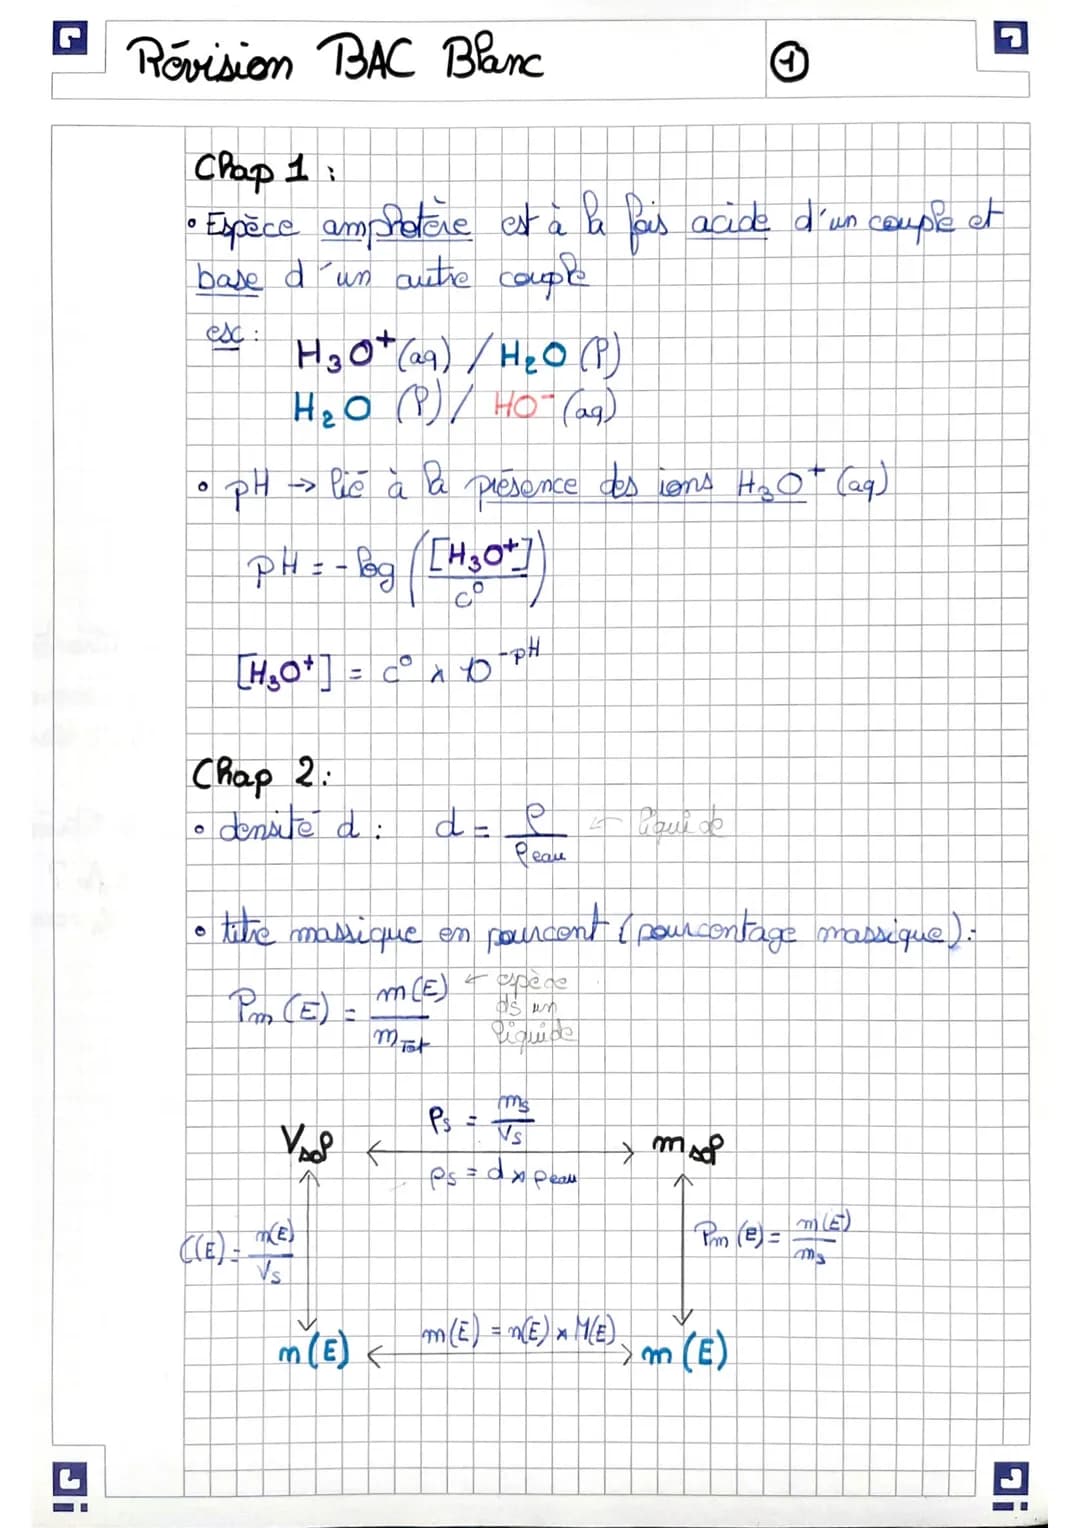 Révision BAC Blanc 1
Chap 1 :
• Espèce amphotère est à la fois acide d'un couple et
base d'un autre couple
ex :
H₃O⁺(aq) / H₂O (l)
H₂O (l) / HO⁻ (aq)
• pH → lié à la présence des ions H₃O⁺ (aq)
pH = - log ([H₃O⁺] / c°)
[H₃O⁺] = c° × 10^-pH
Chap 2 :
• densité d : d = ρ / ρeau ← liquide
• titre massique en pourcent (pourcentage massique) :
Pm (E) = m(E) / mTot ← espèce
ds un
liquide
ρs = ms / Vs
Vsol ↔ msol
ρs = d × ρeau
C(E) = n(E) / Vs
Pm (E) = m(E) / ms
m(E) = n(E) × M(E)
n(E) ↔ m(E)